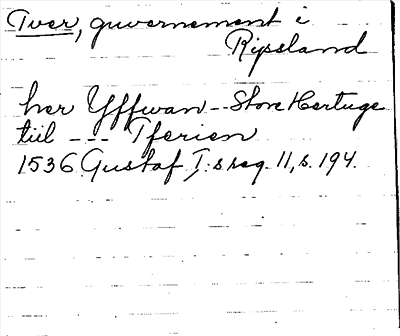 Tver, guvernement i
Ryssland
her Yffwan -- Store Hertuge
tiil --- Tferien
1536 Gustaf I:s reg. 11, s. 194.